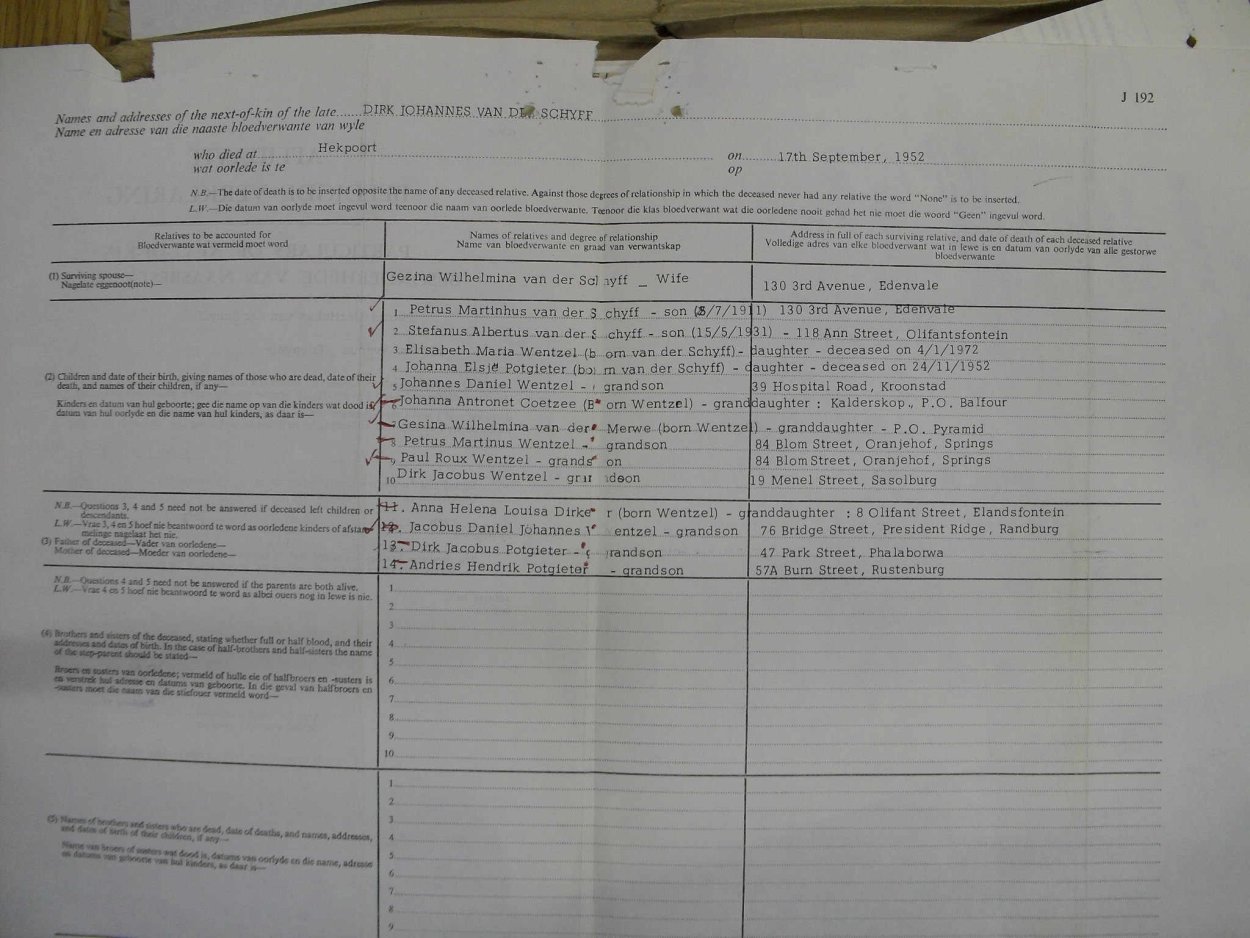 J 192
Names and addresses of the next-of-kin of the late DIRK JOHANNES VAN DER SCHYFF
Name en adresse van die naaste bloedverwante van wyle
who died at Hekpoort on 17th September, 1952
wat oorlede is te op
N.B.—The date of death is to be inserted opposite the name of any deceased relative. Against those degrees of relationship in which the deceased never had any relative the word "None" is to be inserted.
L.W.—Die datum van oorlyde moet ingevul word teenoor die naam van oorlede bloedverwante. Teenoor die klas bloedverwant wat die oorledene nooit gehad het nie moet die woord "Geen" ingevul word.
Relatives to be accounted for
Bloedverwante wat vermeld moet word
Names of relatives and degree of relationship
Name van bloedverwante en graad van verwantskap
Address in full of each surviving relative, and date of death of each deceased relative
Volledige adres van elke bloedverwant wat in lewe is en datum van oorlyde van alle gestorwe
bloedverwante
(1) Surviving spouse—
Nagelate eggenoot(note)—
Gezina Wilhelmina van der Schyff _ Wife 130 3rd Avenue, Edenvale
(2) Children and date of their birth, giving names of those who are dead, date of their
death, and names of their children, if any—
Kinders en datum van hul geboorte; gee die name op van die kinders wat dood is,
datum van hul oorlyde en die name van hul kinders, as daar is—
1 Petrus Martinhus van der Schyff - son (5/7/1911) 130 3rd Avenue, Edenvale
2 Stefanus Albertus van der Schyff - son (15/5/1931) - 118 Ann Street, Olifantsfontein
3 Elisabeth Maria Wentzel (born van der Schyff)- daughter - deceased on 4/1/1972
4 Johanna Elsje Potgieter (born van der Schyff) - daughter - deceased on 24/11/1952
5 Johannes Daniel Wentzel - grandson 39 Hospital Road, Kroonstad
6 Johanna Antronet Coetzee (Born Wentzel) - granddaughter : Kalderskop., P.O. Balfour
7 Gesina Wilhelmina van der Merwe (born Wentzel) - granddaughter - P.O. Pyramid
8 Petrus Martinus Wentzel - grandson 84 Blom Street, Oranjehof, Springs
9 Paul Roux Wentzel - grandson 84 Blom Street, Oranjehof, Springs
10 Dirk Jacobus Wentzel - grandson 19 Menel Street, Sasolburg
N.B.—Questions 3, 4 and 5 need not be answered if deceased left children or
descendants.
L.W.—Vrae 3, 4 en 5 hoef nie beantwoord te word as oorledene kinders of afstam-
melinge nagelaat het nie.
(3) Father of deceased—Vader van oorledene—
Mother of deceased—Moeder van oorledene—
11. Anna Helena Louisa Dirker (born Wentzel) - granddaughter : 8 Olifant Street, Elandsfontein
12. Jacobus Daniel Johannes Wentzel - grandson 76 Bridge Street, President Ridge, Randburg
13. Dirk Jacobus Potgieter - grandson 47 Park Street, Phalaborwa
14. Andries Hendrik Potgieter - grandson 57A Burn Street, Rustenburg
N.B.—Questions 4 and 5 need not be answered if the parents are both alive.
L.W.—Vrae 4 en 5 hoef nie beantwoord te word as albei ouers nog in lewe is nie.
(4) Brothers and sisters of the deceased, stating whether full or half blood, and their
addresses and dates of birth. In the case of half-brothers and half-sisters the name
of the step-parent should be stated—
Broers en susters van oorledene; vermeld of hulle eie of halfbroers en -susters is
en verstrek hul adresse en datums van geboorte. In die geval van halfbroers en
-susters moet die naam van die stiefouer vermeld word—
1
2
3
4
5
6
7
8
9
10
(5) Names of brothers and sisters who are dead, date of deaths, and names, addresses,
and dates of birth of their children, if any—
Name van broers of susters wat dood is, datums van oorlyde en die name, adresse
en datums van geboorte van hul kinders, as daar is—
1
2
3
4
5
6
7
8
9